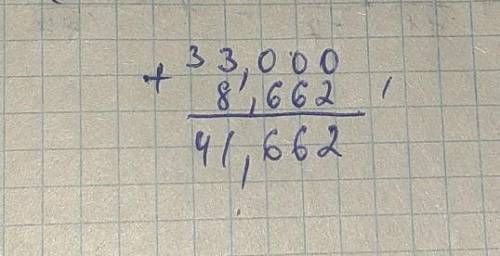 33,000
+ 8,662
41,662